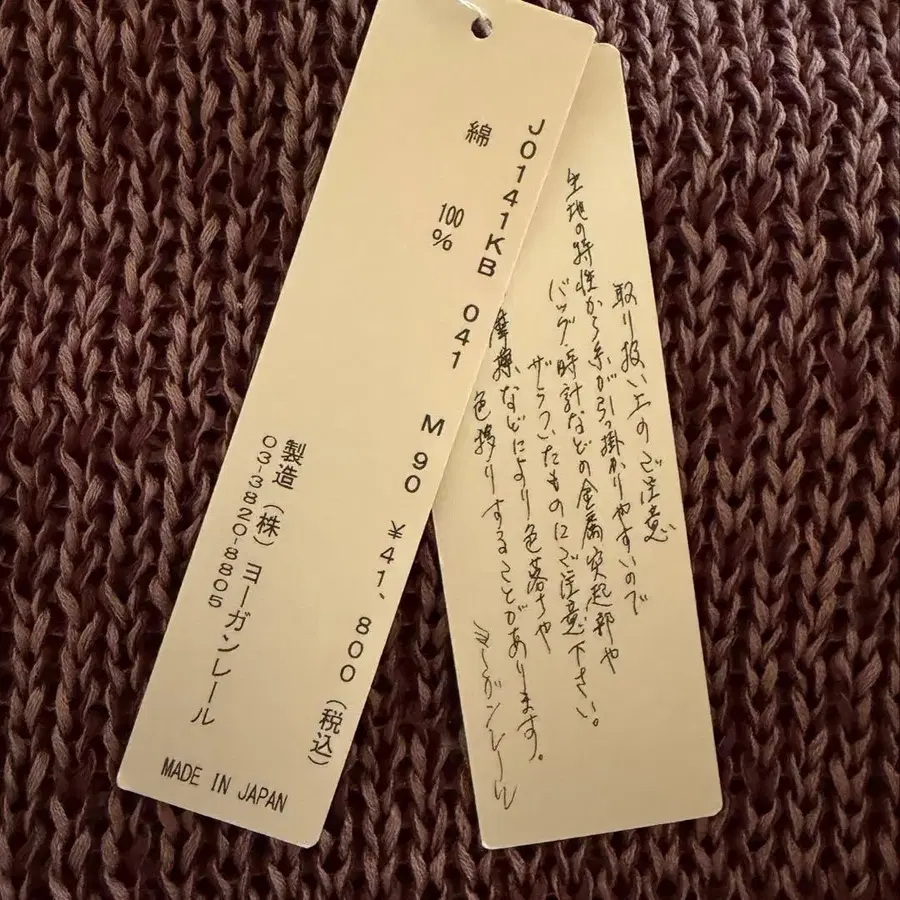 J0141KB 041 M 90 ¥41,800(税込)
綿 100%
製造(株)ヨーガンレール
03-3820-8805
MADE IN JAPAN
取り扱い上のご注意
生地の特性から糸が引っ掛かりやすいので
バッグ、時計などの金属突起部や
ザラついたものにご注意下さい。
摩擦などにより色落ちや
色移りすることがあります。
ヨーガンレール